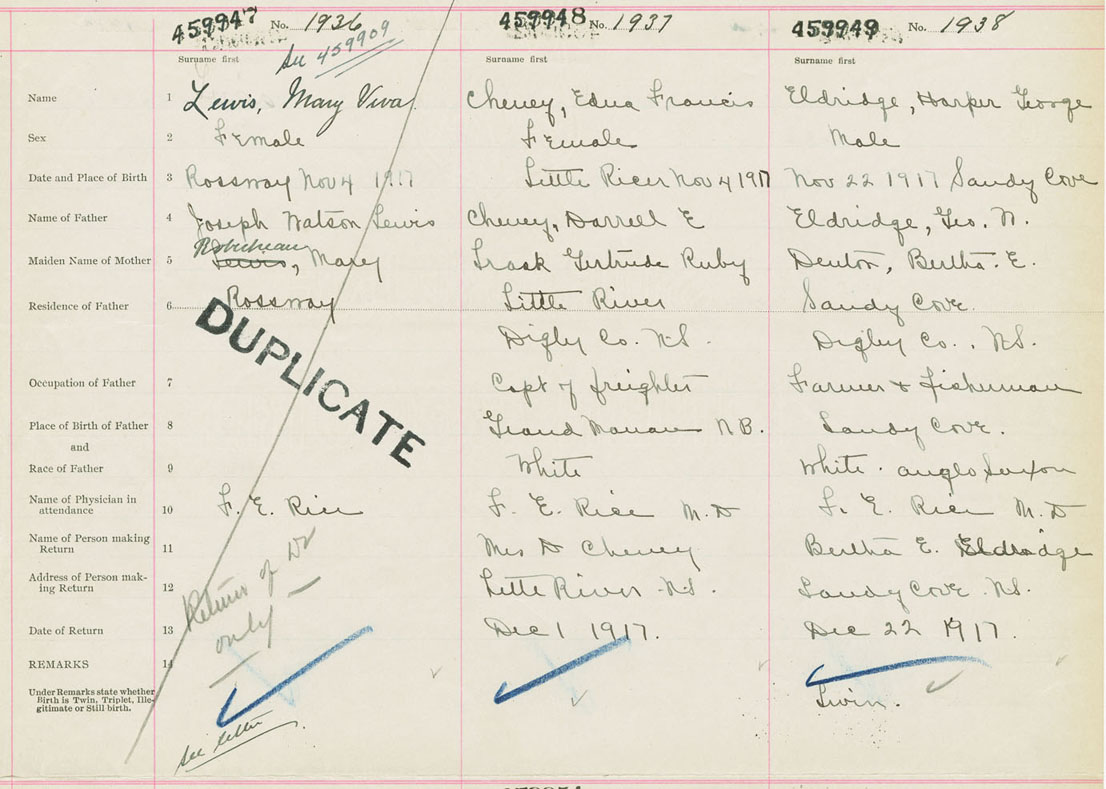 459947 No. 1936 459948 No. 1937 459949 No. 1938
See 459909
Surname first Surname first Surname first
Name 1 Lewis, Mary Viva Cheney, Edna Francis Eldridge, Harper George
Sex 2 Female Female Male
Date and Place of Birth 3 Rossway Nov 4 1917 Little River Nov 4 1917 Nov 22 1917 Sandy Cove
Name of Father 4 Joseph Watson Lewis Cheney, Darrell E Eldridge, Geo. W.
Robicheau
Maiden Name of Mother 5 Lewis, Mary Trask Gertrude Ruby Denton, Bertha. E.
Residence of Father 6 Rossway Little River Sandy Cove.
Digby Co. N.S. Digby Co., N.S.
DUPLICATE
Occupation of Father 7 Capt of freighter Farmer & fisherman
Place of Birth of Father 8 Grand Manan N.B. Sandy Cove.
and
Race of Father 9 White White. anglo Saxon
Name of Physician in
attendance 10 F. E. Rice F. E. Rice M.D F. E. Rice M.D
Name of Person making
Return 11 Mrs D Cheney Bertha E. Eldridge
Address of Person mak-
ing Return 12 Little River N.S. Sandy Cove. N.S.
Return of Dr
only
Date of Return 13 Dec 1 1917. Dec 22 1917.
REMARKS 14
Under Remarks state whether
Birth is Twin, Triplet, Ille-
gitimate or Still birth.
Twin.
See letter